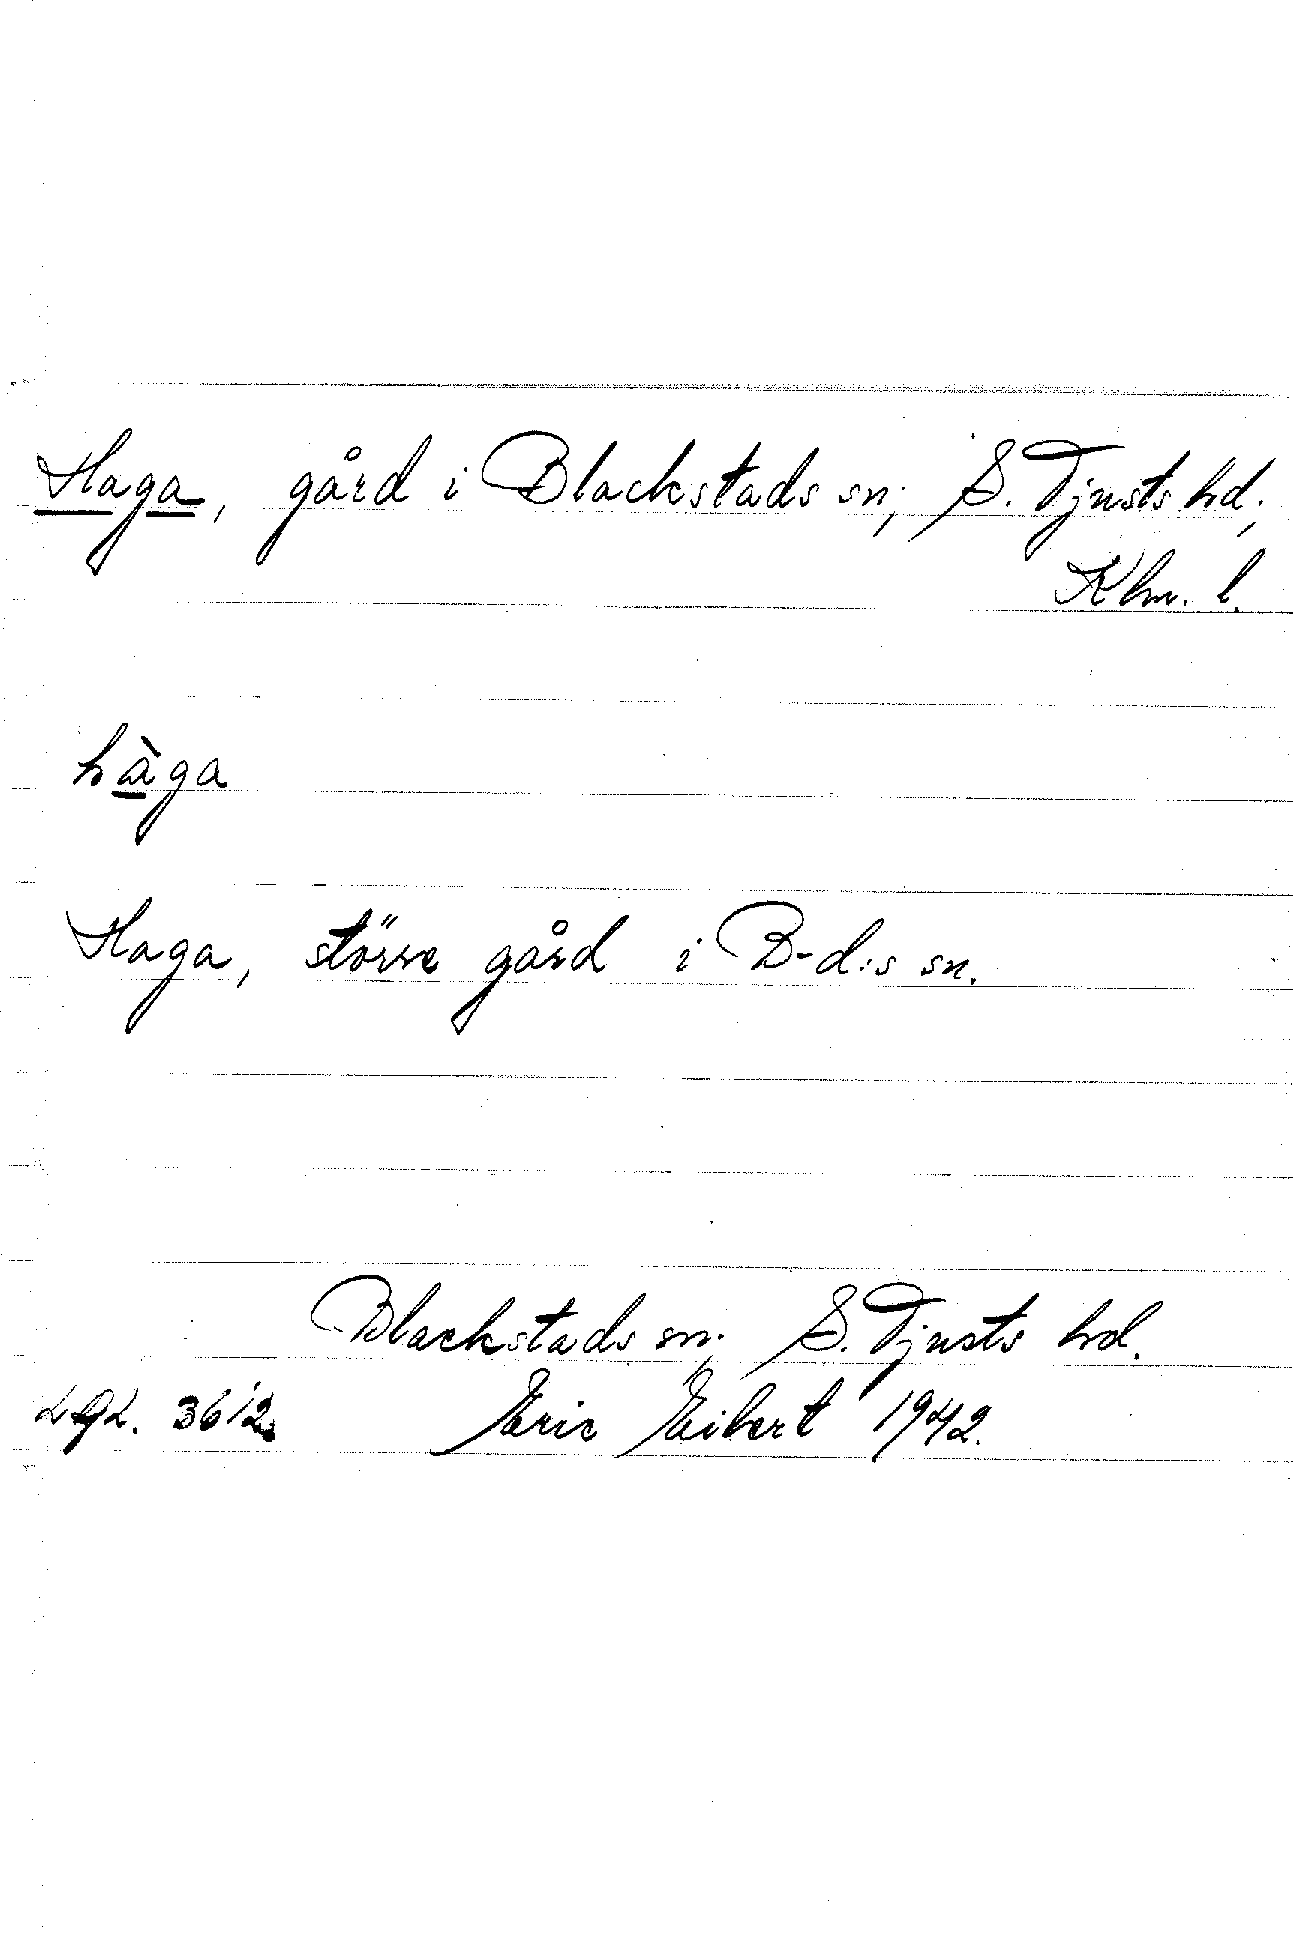 Haga, gård i Blackstads sn; S. Tjusts hd;
Klm. l.
hàga
Haga, större gård i B-d:s sn.
Blackstads sn; S. Tjusts hd.
Lgd. 3612 Eric Eibert 1942.